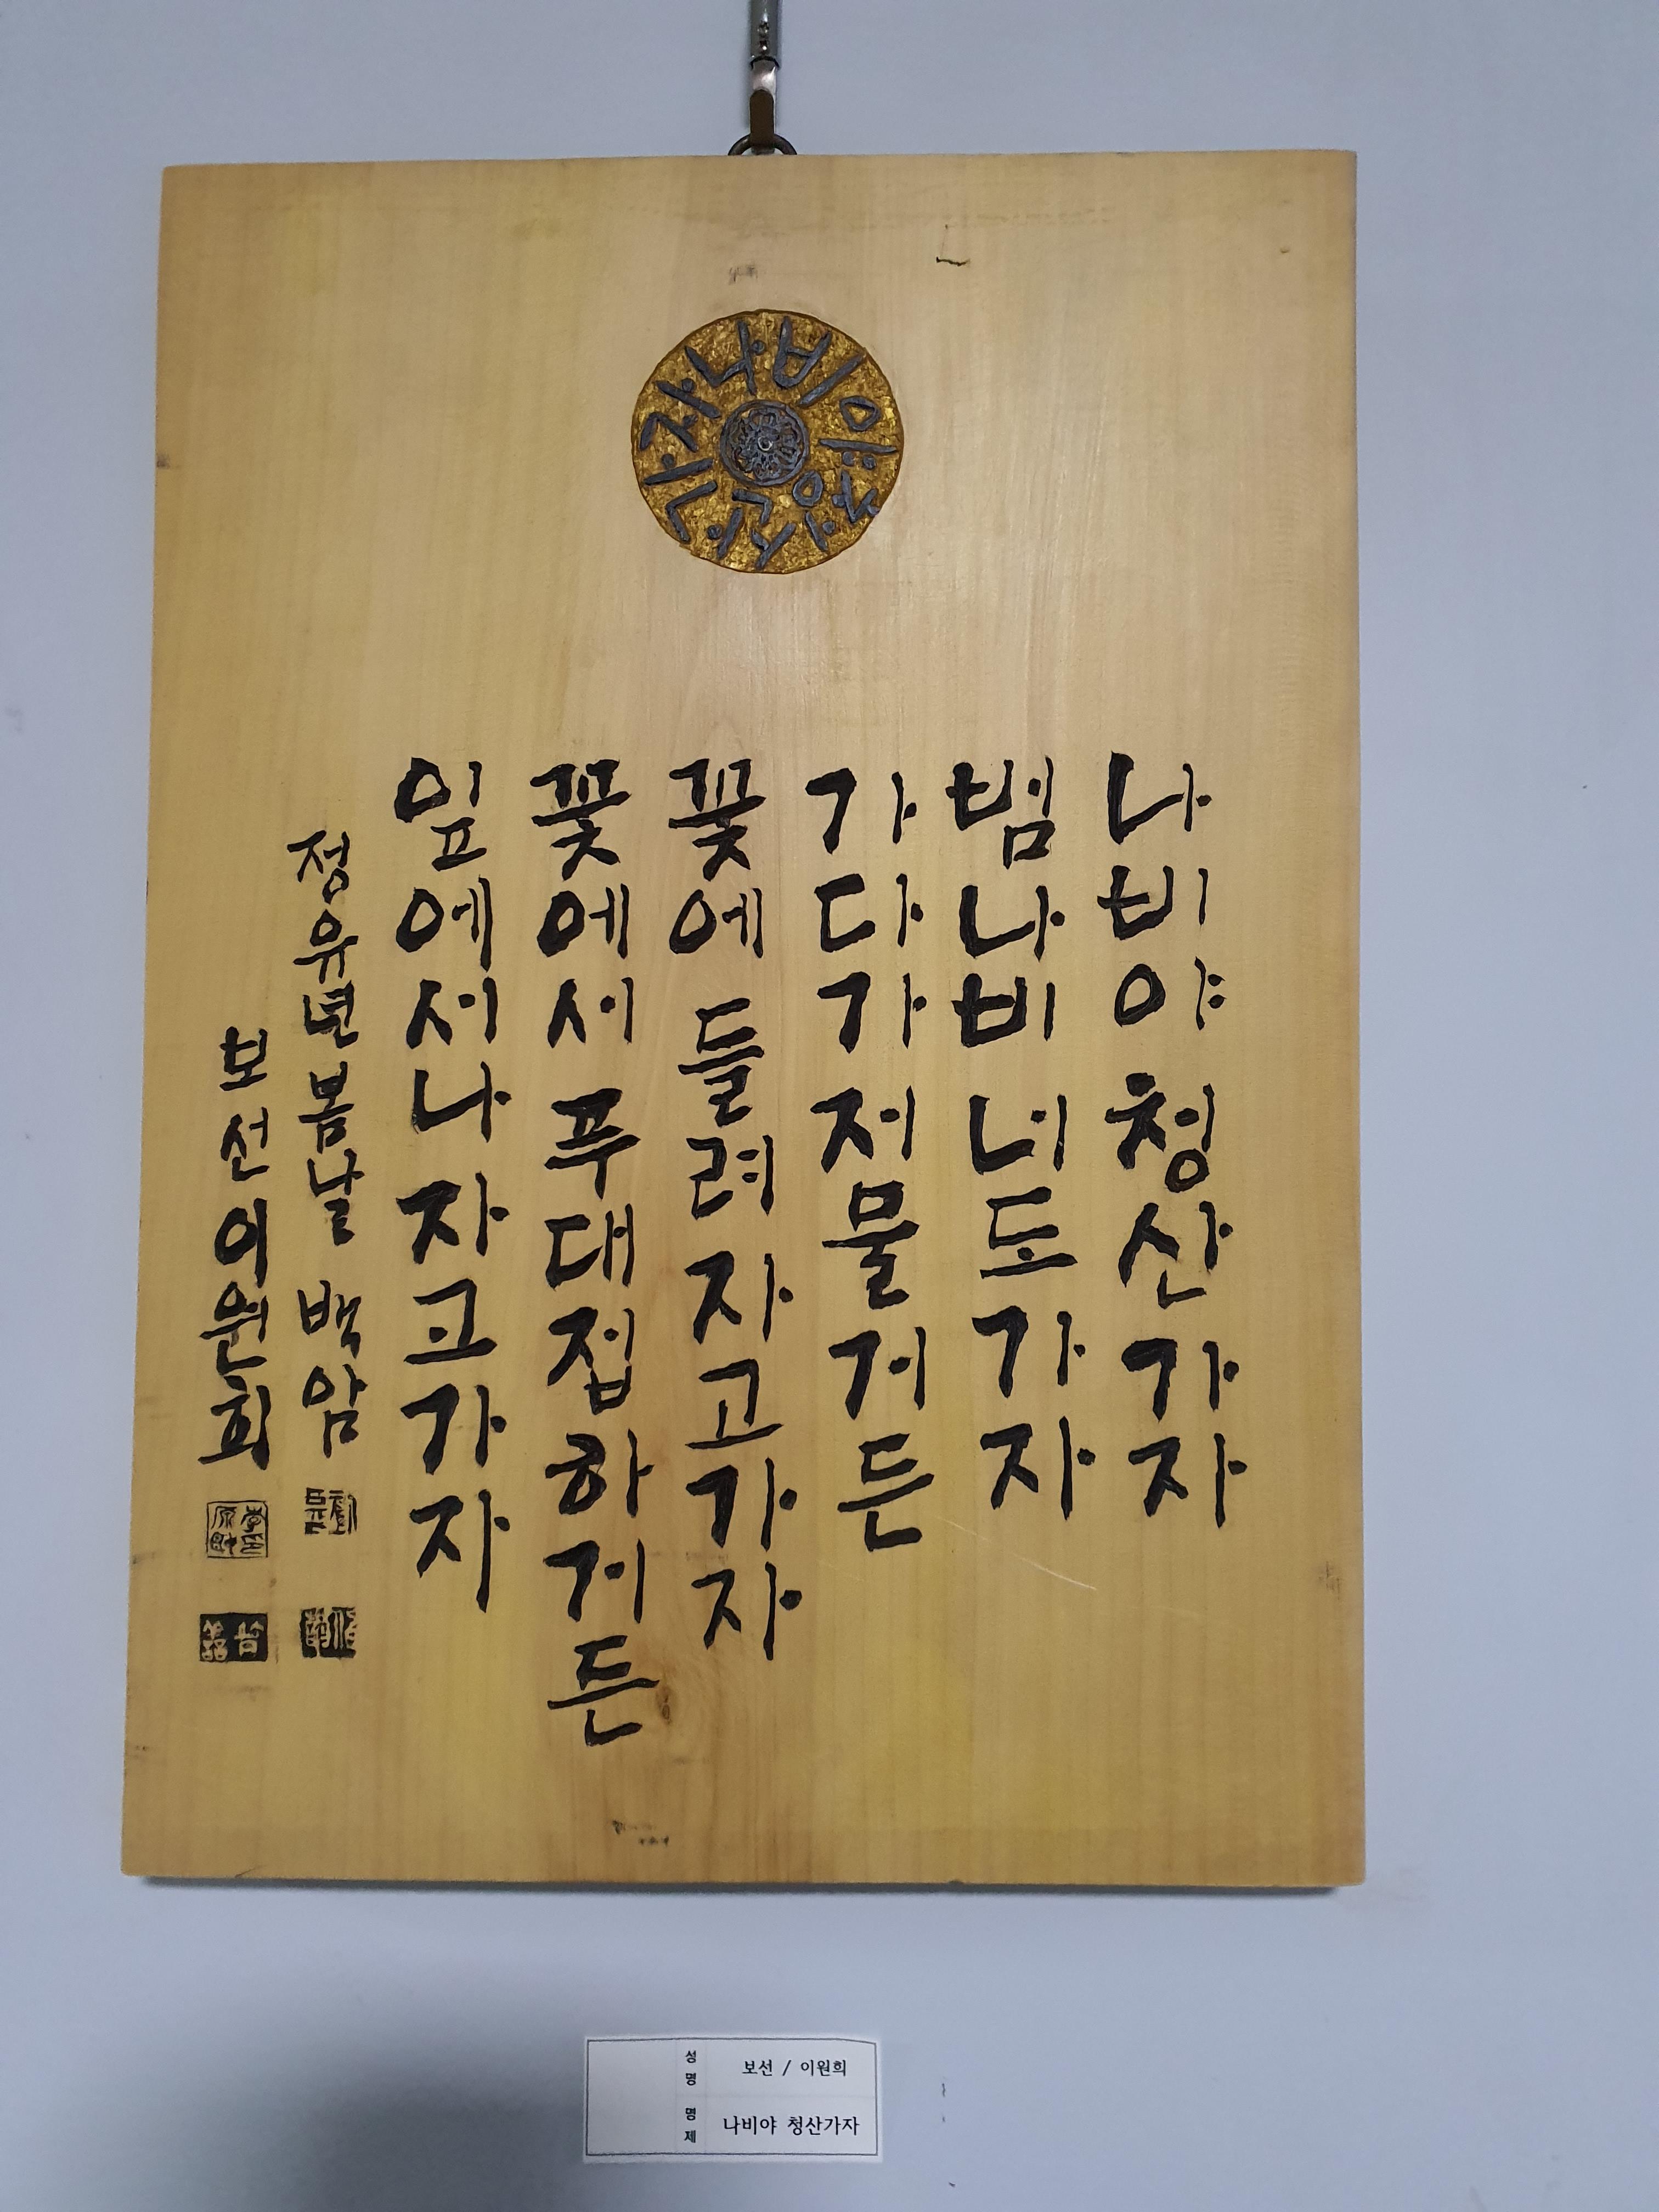 나비야청산가자
나비야 청산 가자
범나비 너도 가자
가다가 저물거든
꽃에 들려 자고가자
꽃에서 푸대접하거든
잎에서나 자고가자
정유년 봄날 백암
보선 이원희
성명 보선 / 이원희
명제 나비야 청산가자